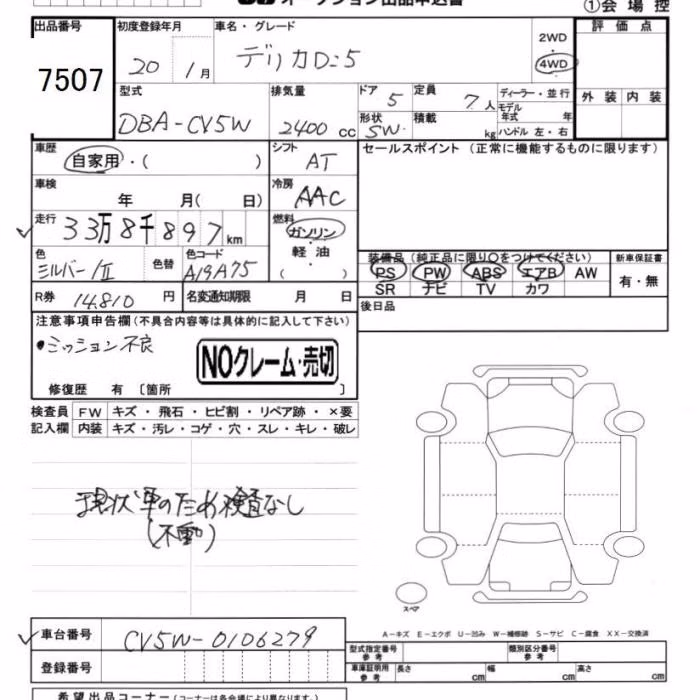 オークション出品申込書
①会場控
出品番号 初度登録年月 車名・グレード 2WD 評価点
7507 20 1月 デリカD:5 4WD
型式 排気量 ドア 定員 ディーラー・並行 外装 内装
DBA-CV5W 2400 cc 5 7人 モデル年式 年
形状 積載
SW kg ハンドル 左・右
車歴 シフト セールスポイント (正常に機能するものに限ります)
自家用・( ) AT
車検 冷房
年 月( 日) AAC
走行 燃料
33万8千897km ガソリン
軽油
( )
色 色替 色コード
シルバー/II A19A75
装備品 (純正品に限り○をつけてください) 新車保証書
PS PW ABS エアB AW 有・無
SR ナビ TV カワ
R券 14,810円 名変通知期限 月 日
後日品
注意事項申告欄 (不具合内容等は具体的に記入して下さい)
•ミッション不良
NOクレーム・売切
修復歴 有 〔箇所 〕
検査員 FW キズ・飛石・ヒビ割・リペア跡・×要
記入欄 内装 キズ・汚レ・コゲ・穴・スレ・キレ・破レ
現状車のため検査なし
(不動)
スペア
A-キズ E-エクボ U-凹み W-補修跡 S-サビ C-腐食 XX-交換済
車台番号 CV5W-0106279
登録番号
型式指定番号 参考 類別区分番号 参考
車庫証明用 参考 長さ cm 幅 cm 高さ cm
希望出品コーナー (コーナーは各会場により異なります。)